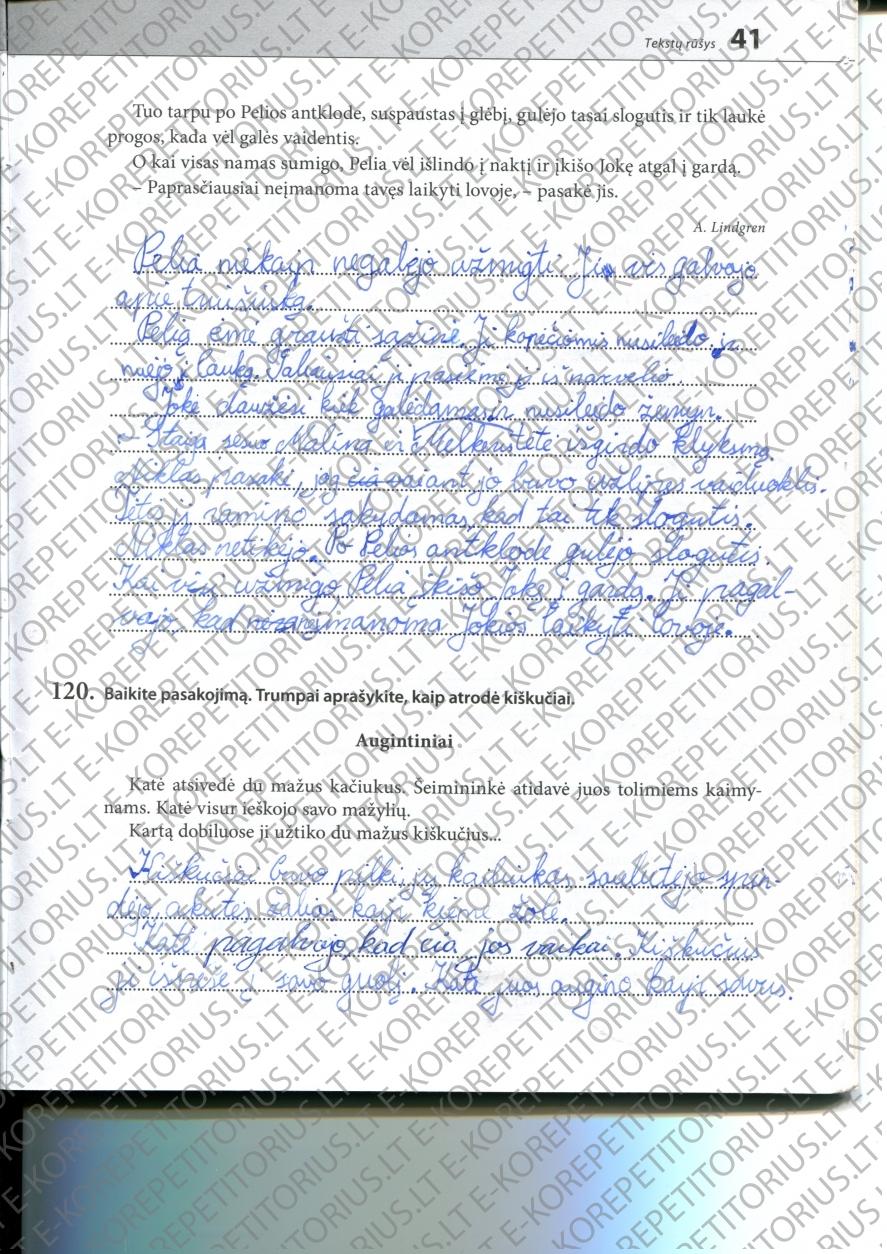 Tekstų rūšys 41
Tuo tarpu po Pelios antklode, suspaustas į glėbį, gulėjo tasai slogutis ir tik laukė
progos, kada vėl galės vaidentis.
O kai visas namas sumigo, Pelia vėl išlindo į naktį ir įkišo Jokę atgal į gardą.
– Paprasčiausiai neįmanoma tavęs laikyti lovoje, – pasakė jis.
A. Lindgren
Pelia niekaip negalėjo užmigti. Ji vis galvojo
apie triušiuką.
Pelią ėmė graužti sąžinė. Ji kopėčiomis nusileido ir
nuėjo į lauką. Galiausiai ji pasiėmė jį iš narvelio.
Jokė daužėsi kiek galėdamas ir nusileido žemyn.
– Staiga sesuo Malina ir Melkerstėtė išgirdo klyksmą.
Niklas pasakė, jog čia ant jo buvo užlipęs vaiduoklis.
Tėtis jį ramino sakydamas, kad tai tik slogutis.
Niklas netikėjo. Po Pelios antklode gulėjo slogutis.
Kai visi užmigo, Pelia įkišo Jokę į gardą. Ji pagal-
vojo, kad neįmanoma Jokios laikyti lovoje.
120. Baikite pasakojimą. Trumpai aprašykite, kaip atrodė kiškučiai.
Augintiniai
Katė atsivedė du mažus kačiukus. Šeimininkė atidavė juos tolimiems kaimy-
nams. Katė visur ieškojo savo mažylių.
Kartą dobiluose ji užtiko du mažus kiškučius...
Kiškučiai buvo pilki, jų kailiukas saulutėje spin-
dėjo, akutės žalios kaip kieme žolė.
Katė pagalvojo, kad čia jos vaikai. Kiškučius
ji išnešė į savo guolį. Katė juos augino kaip savus.
E-KOREPETITORIUS.LT